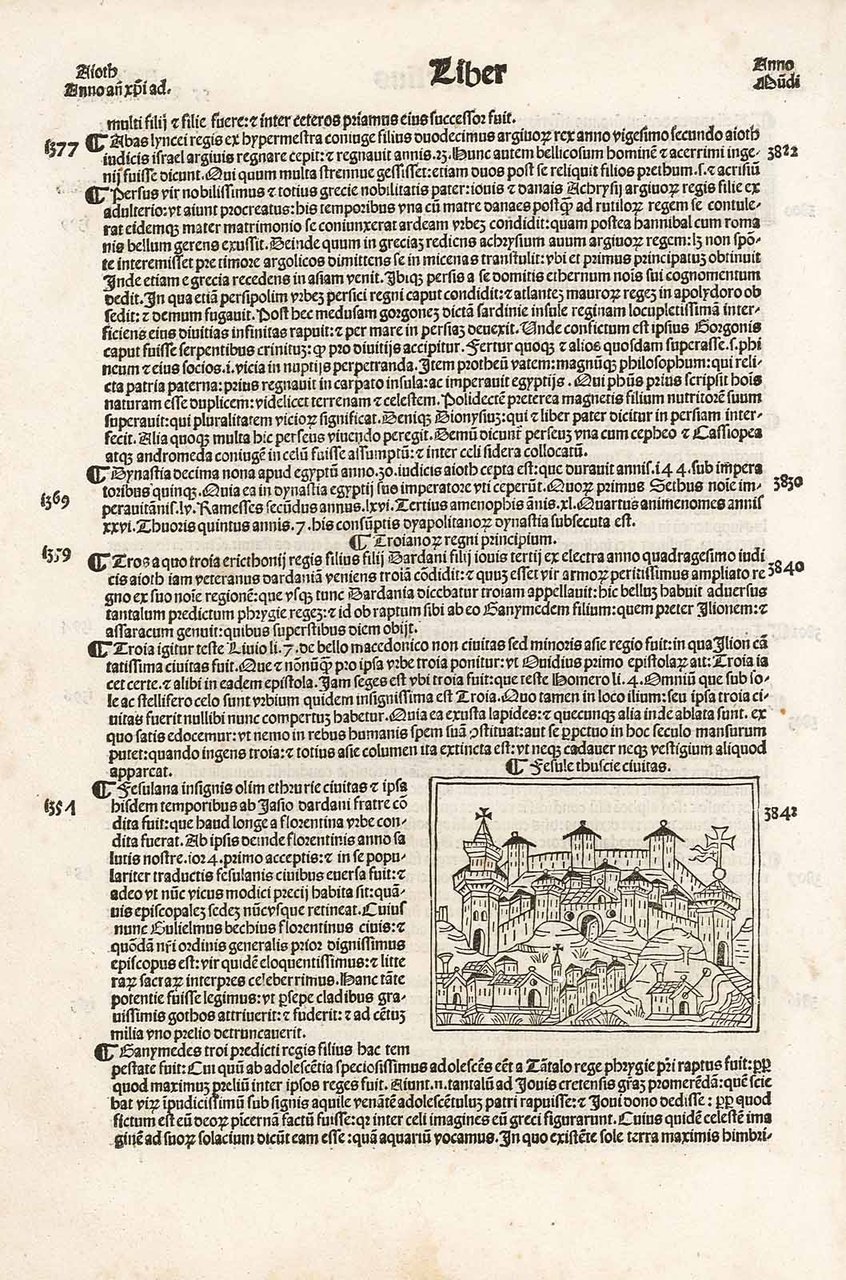 Aioth
Anno añ xp̄i ad.
Liber
Anno
Mūdi
multi filij ⁊ filie fuere:⁊ inter ceteros priamus eius successor fuit.
1377
¶ Abas lyncei regis ex hypermestra coniuge filius duodecimus argiuoꝝ rex anno vigesimo secundo aioth
iudicis israel argiuis regnare cepit:⁊ regnauit annis.23.Hunc autem bellicosum hominē ⁊ acerrimi inge-
3822
nij fuisse dicunt.Qui quum multa strennue gessisset:etiam duos post se reliquit filios prethum.s.⁊ acrisiū
¶ Persus vir nobilissimus ⁊ totius grecie nobilitatis pater:iouis ⁊ danais Achrysij argiuoꝝ regis filie ex
adulterio:vt aiunt procreatus:his temporibus vna cū matre danaes postꝙ̄ ad rutiloꝝ regem se contule-
rat eidemqꝫ mater matrimonio se coniunxerat ardeam vrbeꝫ condidit:quam postea hannibal cum roma
nis bellum gerens exussit.Deinde quum in greciaꝫ rediens achrysium auum argiuoꝝ regem:lꝫ non spō-
te interemisset pre timore argolicos dimittens se in micenas transtulit:vbi et primus principatuꝫ obtinuit
Inde etiam e grecia recedens in asiam venit.Ibiqꝫ persis a se domitis ethernum nois sui cognomentum
dedit.In qua etiā persipolim vrbeꝫ persici regni caput condidit:⁊ atlanteꝫ mauroꝝ regeꝫ in apolydoro ob
sedit:⁊ demum fugauit.Post hec medusam gorgoneꝫ dictā sardinie insule reginam locupletissimā inter-
ficiens eius diuitias infinitas rapuit:⁊ per mare in persiaꝫ deuexit.Unde confictum est ipsius Gorgonis
caput fuisse serpentibus crinituꝫ:ꝙ pro diuitijs accipitur.Fertur quoqꝫ ⁊ alios quosdam superasse.s.phi
neum ⁊ eius socios.i.vicia in nuptijs perpetranda.Item protheū vatem:magnūqꝫ philosophum:qui reli-
cta patria paterna:prius regnauit in carpato insula:ac imperauit egyptijs.Qui phūs prius scripsit hois
naturam esse duplicem:videlicet terrenam ⁊ celestem.Polidectē preterea magnetis filium nutritorē suum
superauit:qui pluralitatem vicioꝝ significat.Deniqꝫ Dionysiuꝫ:qui ⁊ liber pater dicitur in persiam inter-
fecit.Alia quoqꝫ multa hic perseus viuendo peregit.Demū dicunt perseuꝫ vna cum cepheo ⁊ Cassiopea
atqꝫ andromeda coniugē in celū fuisse assumptū:⁊ inter celi sidera collocatū.
¶ Dynastia decima nona apud egyptū anno.30.iudicis aioth cepta est:que durauit annis.144.sub impera
3830
1369
toribus quinqꝫ.Quia ea in dynastia egyptij sus imperatore vti ceperūt.Quoꝝ primus Sethus noie im-
perauitānif.lv.Ramesses secūdus annus.lxvi.Tertius amenophis ānis.xl.Quartus animenomes annis
xxvi.Thuoris quintus annis.7.his consūptis dyapolitanoꝝ dynastia subsecuta est.
¶ Troianoꝝ regni principium.
1359
¶ Tros a quo troia ericthonij regis filius filij Dardani filij iouis tertij ex electra anno quadragesimo iudi
cis aioth iam veteranus dardaniā veniens troiā cōdidit:⁊ quuꝫ esset vir armoꝝ peritissimus ampliato re
3840
gno ex suo noie regionē:que vsqꝫ tunc Dardania dicebatur troiam appellauit:hic belluꝫ habuit aduersus
tantalum predictum phrygie regeꝫ:⁊ id ob raptum sibi ab eo Ganymedem filium:quem preter Ilionem:⁊
assaracum genuit:quibus superstibus diem obijt.
¶ Troia igitur teste Liuio li.7.de bello macedonico non ciuitas sed minoris asie regio fuit:in qua Ilion cā
tatissima ciuitas fuit.Que ⁊ nōnūqꝙ̄ pro ipsa vrbe troia ponitur:vt Ouidius primo epistolaꝝ ait:Troia ia
cet certe.⁊ alibi in eadem epistola.Iam seges est vbi troia fuit:que teste Homero li.4.Omniū que sub so-
le ac stellifero celo sunt vrbium quidem insignissima est Troia.Quo tamen in loco ilium:seu ipsa troia ci-
uitas fuerit nullibi nunc compertuꝫ habetur.Quia ea exusta lapides:⁊ quecunqꝫ alia inde ablata sunt.ex
quo satis edocemur:vt nemo in rebus humanis spem suā ꝯstituat:aut se ꝑpetuo in hoc seculo mansurum
putet:quando ingens troia:⁊ totius asie columen ita extincta est:vt neqꝫ cadauer neqꝫ vestigium aliquod
apparcat.
¶ Fesule thuscie ciuitas.
¶ Fesulana insignis olim ethrurie ciuitas ⁊ ipsa
1351
hisdem temporibus ab Jasio dardani fratre cō
3842
dita fuit:que haud longe a florentina vrbe con-
dita fuerat.Ab ipsis deinde florentinis anno sa
lutis nostre.1024.primo acceptis:⁊ in se popu-
lariter traductis fesulanis ciuibus euersa fuit:⁊
adeo vt nūc vicus modici precij habita sit:quā-
uis episcopaleꝫ sedeꝫ nūcvsque retineat.Cuius
nunc Gulielmus bechius florentinus ciuis:⁊
quōdā nr̄i ordinis generalis prior dignissimus
episcopus est:vir quidē eloquentissimus:⁊ litte
raꝝ sacraꝝ interpres celeberrimus.Hanc tāte
potentie fuisse legimus:vt ꝑsepe cladibus gra-
uissimis gothos attriuerit:⁊ fuderit:⁊ ad cētuꝫ
milia vno prelio detruncauerit.
¶ Ganymedes troi predicti regis filius hac tem
pestate fuit:Cui quū ab adolescētia speciosissimus adolescēs eēt a Tātalo rege phrygie pr̄i raptus fuit:ꝓpꝑ
quod maximuꝫ preliū inter ipsos reges fuit.Aiunt.n.tantalū ad Jouis cretensis gr̄aꝫ promerēdā:quē scie
bat virꝝ īpudicissimū sub signis aquile venātē adolescētuluꝫ patri rapuisse:⁊ Joui dono dedisse:ꝓpꝑ quod
fictum est eū deoꝝ picernā factū fuisse:qꝛ inter celi imagines eū greci figurarunt.Cuius quidē celestē ima
ginē ad suoꝝ solacium dicūt eam esse:quā aquariū vocamus.In quo existēte sole terra maximis himbri-